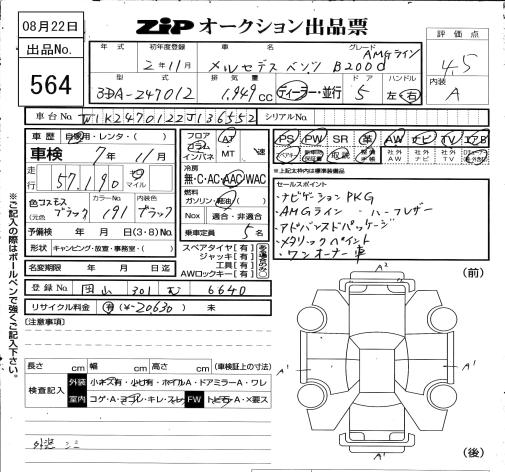 08月22日
ZIP オークション出品票
出品No.
564
評価点
4.5
内装
A
年式 初年度登録 車名 グレード
2年11月 メルセデスベンツ B200d AMGライン
型式 排気量 ドア ハンドル
3DA-247012 1,949cc ディーラー・並行 5 左・右
車台No. W1K2470122J136552 シリアルNo.
車歴 自家用・レンタ・( )
車検 7年11月
走行 57,190 キロ マイル
色コスモス ブラック カラーNo. 191 内装色 ブラック
(元色)
予備検 年 月 日(3・8)No.
形状 キャンピング・放置・事務室・( )
名変期限 年 月 日迄
フロア コラム インパネ AT MT 速
冷房
無・C・AC・AAC・WAC
燃料
ガソリン・軽油( )
Nox 適合・非適合
乗車定員 5名
スペアタイヤ[有]
ジャッキ[有]
工具[有]
AWロックキー[有]
PS PW SR 革 AW ナビ TV エアB
取説 社外AW 社外ナビ 社外TV
※上記太枠内は標準装備品
セールスポイント
・ナビゲーションPKG
・AMGライン ・ハーフレザー
・アドバンスドパッケージ
・メタリックペイント
・ワンオーナー車
登録No. 岡山 301 6640
リサイクル料金 有(¥-20630) 未
(注意事項)
長さ cm 幅 cm 高さ cm (車検証上の寸法)
検査記入 外装 小キズ有・小凹有・ホイルA・ドアミラーA・ワレ
室内 コゲ・A・ヨゴレ・キレ・スレ FW トビ石・A・×要ス
※ご記入の際はボールペンで強くご記入下さい。
(前)
A2
A1
A1
A1
(後)